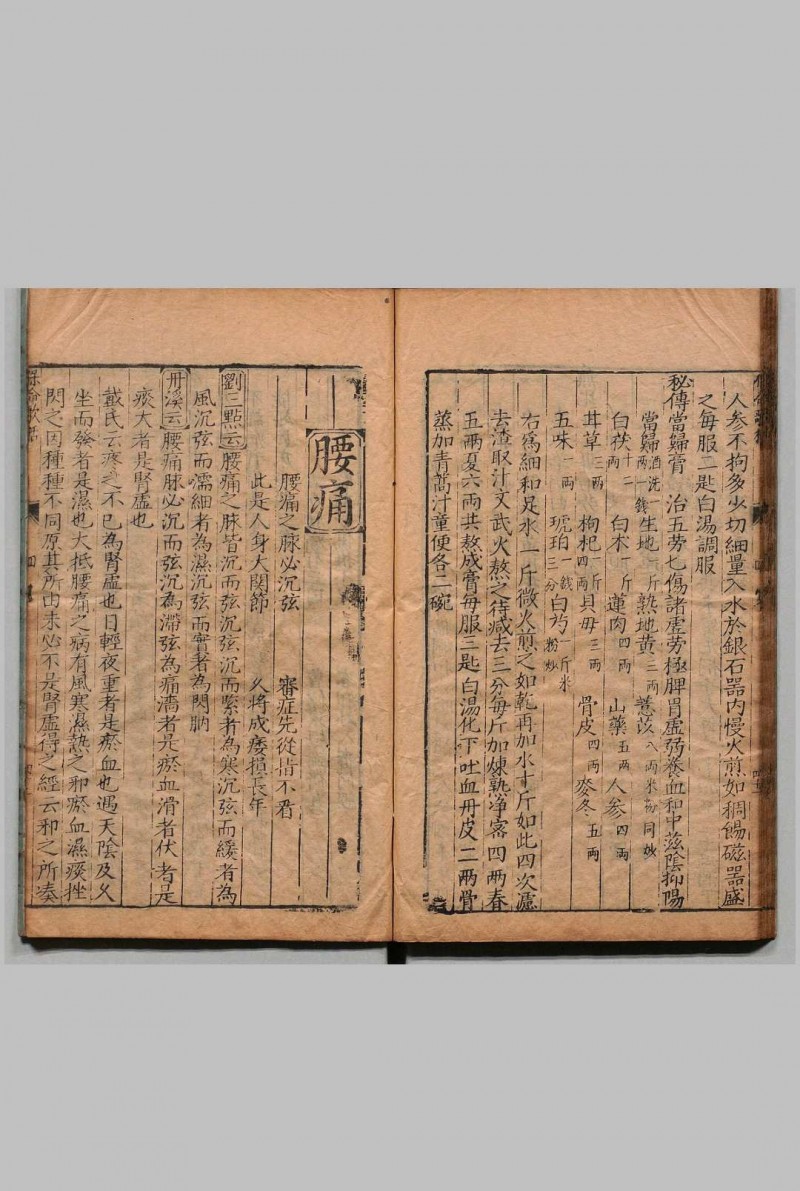 人参不拘多少切細量入水於銀石器内慢火煎如稠餳磁器盛
之每服二匙白湯調服
秘傳當歸膏　治五劳七傷諸虚劳極脾胃虚弱養血和中滋陰抑陽
當歸酒洗一两一錢　生地一斤　熟地黄三两　薏苡八两米粉同炒
白茯十二两　白术一斤　蓮肉四两　山藥五两　人参四两
甘草三两　枸杞一斤四两　貝毋三两　骨皮四两　麥冬五两
五味一两　琥珀一錢三分　白芍一斤米粉炒
右為細和足水一斤微火煎之如乾再加水十斤如此四次濾
去渣取汁文武火熬之待减去三分每斤加煉熟净蜜四两春
五两夏六两共熬成膏每服三匙白湯化下吐血丹皮二两骨
蒸加青蒿汁童便各二碗
腰痛
腰痛之脉必沉弦　審症先從指下看
此是人身大関節　久将成痿損長年
劉三點云腰痛之脉皆沉而弦沉弦而緊者為寒沉弦而緩者為
風沉弦而濡細者為濕沉弦而實者為閃肭
丹溪云腰痛脉必沉而弦沉為滯弦為痛濇者是瘀血滑者伏者是
痰大者是腎虚也
戴氏云疼之不已為腎虚也日輕夜重者是瘀血也遇天陰及久
坐而發者是濕也大抵腰痛之病有風寒濕熱之邪瘀血濕痰挫
閃之因種種不同原其所由未必不是腎虚得之經云邪之所凑